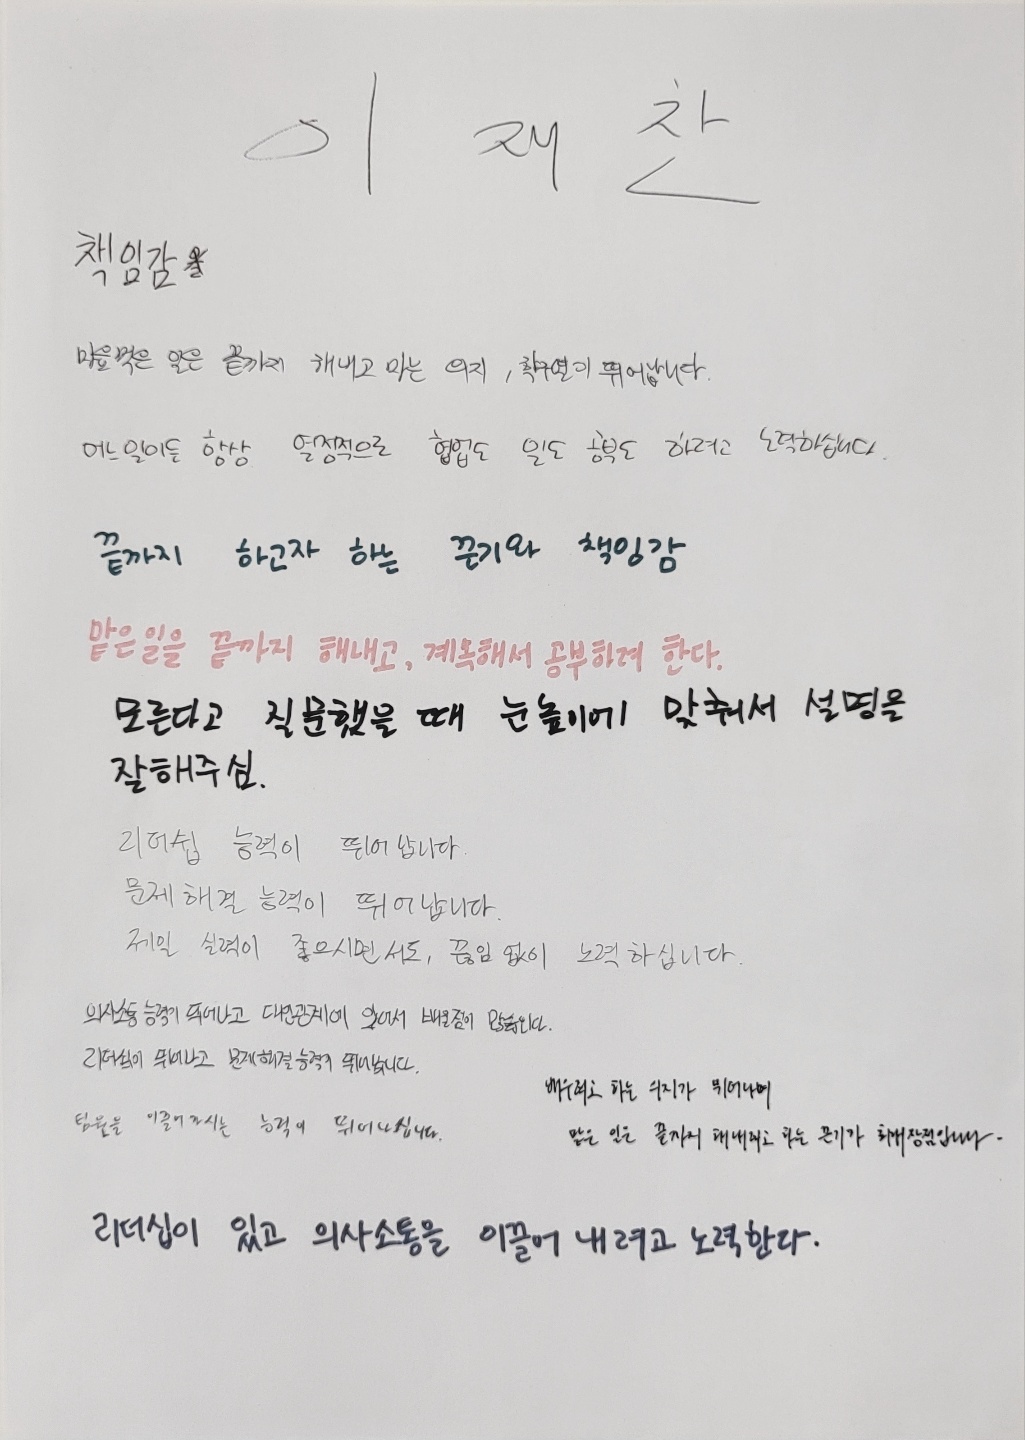 이재찬
책임감
마음먹은 일은 끝까지 해내고 마는 의지, 학구열이 뛰어납니다.
어느일이든 항상 열정적으로 협업도 일도 공부도 하려고 노력하십니다.
끝까지 하고자 하는 끈기와 책임감
맡은일을 끝까지 해내고, 계속해서 공부하려 한다.
모른다고 질문했을 때 눈높이에 맞춰서 설명을
잘해주심.
리더쉽 능력이 뛰어납니다.
문제해결 능력이 뛰어납니다.
제일 실력이 좋으시면서도, 끊임없이 노력하십니다.
의사소통능력이 뛰어나고 대인관계에 있어서 배울점이 많습니다.
리더쉽이 뛰어나고 문제해결능력이 뛰어납니다.
배우려고 하는 의지가 뛰어나며
팀원을 이끌어주시는 능력이 뛰어나십니다.
맡은 일은 끝까지 해내려고 하는 끈기가 최대장점입니다.
리더십이 있고 의사소통을 이끌어 내려고 노력한다.